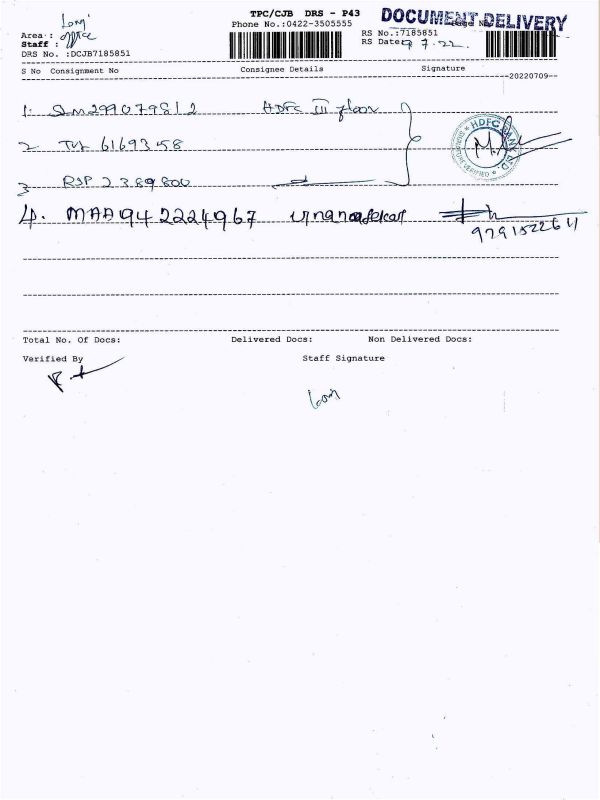 TPC/CJB DRS - P43
DOCUMENT DELIVERY
Phone No.:0422-3505555
Area :
Staff : office
DRS No. :DCJB7185851
RS No.:7185851
RS Date: 9.7.22.
S No Consignment No Consignee Details Signature
20220709
1. SLM299079812 HDFC III floor
2 TVL 6169358
3 RSP 2389800
HDFC BANK LTD.
SIGNATURE VERIFIED
4. MAA942224967
9791522611
Total No. Of Docs: Delivered Docs: Non Delivered Docs:
Verified By Staff Signature